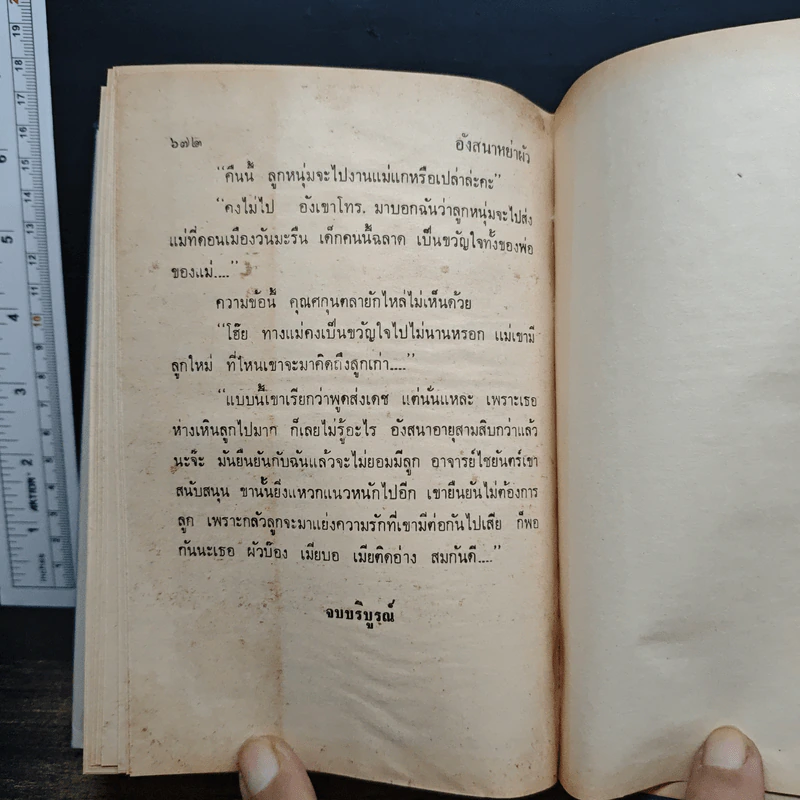 ๖๗๒
อังสนาหย่าผัว
“คืนนี้ ลูกหนุ่มจะไปงานแม่แกหรือเปล่าล่ะคะ”
“คงไม่ไป อังเขาโทร. มาบอกฉันว่าลูกหนุ่มจะไปส่ง
แม่ที่ดอนเมืองวันมะรืน เด็กคนนี้ฉลาด เป็นขวัญใจทั้งของพ่อ
ของแม่....”
ความข้อนี้ คุณศกุนตลายักไหล่ไม่เห็นด้วย
“โอ๊ย ทางแม่คงเป็นขวัญใจไปไม่นานหรอก แม่เขามี
ลูกใหม่ ที่ไหนเขาจะมาคิดถึงลูกเก่า....”
“แบบนี้เขาเรียกว่าพูดส่งเดช แต่นั่นแหละ เพราะเธอ
ห่างเหินลูกไปมาก ก็เลยไม่รู้อะไร อังสนาอายุสามสิบกว่าแล้ว
นะจ๊ะ มันยืนยันกับฉันแล้วจะไม่ยอมมีลูก อาจารย์ไชยันตร์เขา
สนับสนุน ขานั้นยิ่งแหวกแนวหนักไปอีก เขายืนยันไม่ต้องการ
ลูก เพราะกลัวลูกจะมาแย่งความรักที่เขามีต่อกันไปเสีย ก็พอ
กันนะเธอ ผัวบ๊อง เมียบอ เมียติดอ่าง สมกันดี....”
จบบริบูรณ์
inches
1
2
3
4
5
6
10
15
16
17
18
19